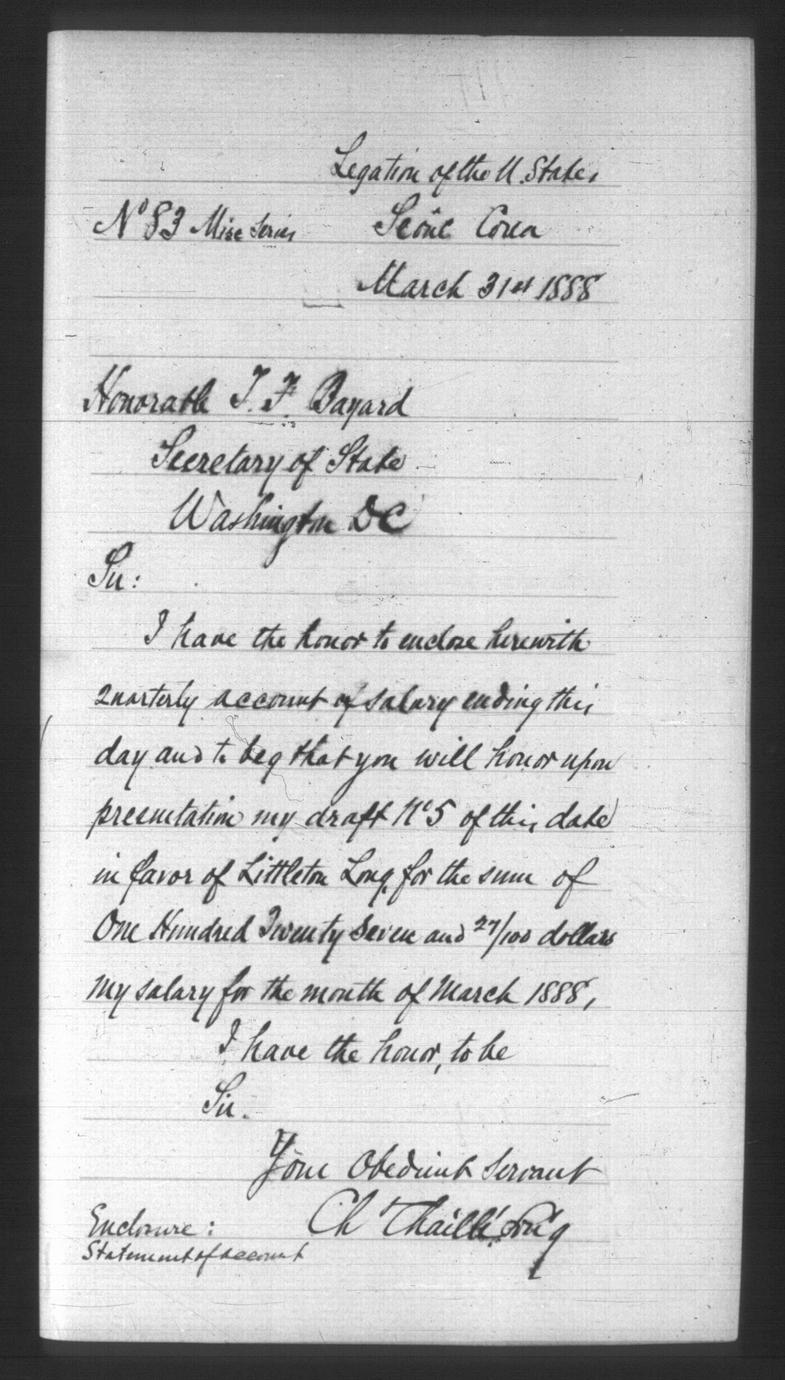 Legation of the U. States
Nº 83 Misc Series
Seoul Corea
March 31st 1888
Honorable T. F. Bayard
Secretary of State
Washington DC
Sir:
I have the honor to enclose herewith
quarterly account of salary ending this
day and to beg that you will honor upon
presentation my draft Nº 5 of this date
in favor of Littleton Long, for the sum of
One Hundred Twenty Seven and 27/100 dollars
my salary for the month of March 1888,
I have the honor, to be
Sir.
Your Obedient Servant
Ch Chaillé Long
Enclosure:
Statement of account